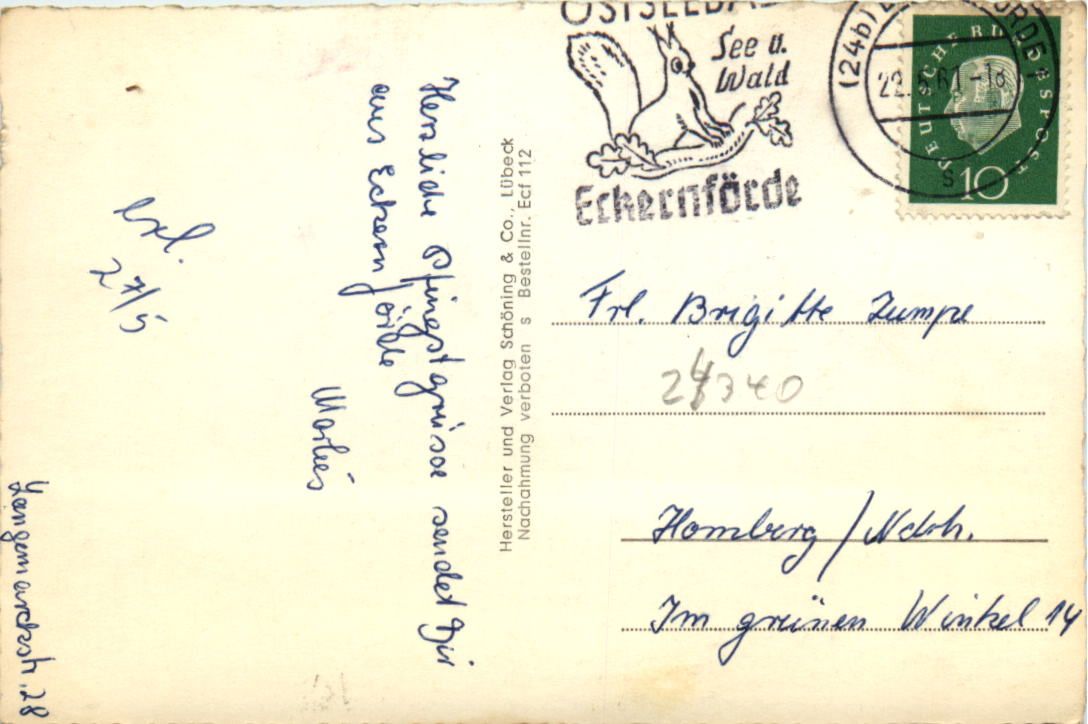 OSTSEEBAD
See u.
Wald
Eckernförde
(24b) ECKERNFÖRDE 1
22.5.61-18
s
DEUTSCHE BUNDESPOST
10
Herzliche Pfingstgrüsse sendet Dir
aus Eckernförde
Marlies
erl.
27/5
Langemarckstr. 28
Hersteller und Verlag Schöning & Co., Lübeck
Nachahmung verboten s Bestellnr. Ecf 112
Frl. Brigitte Zumpe
Homberg / Ndrh.
Im grünen Winkel 14